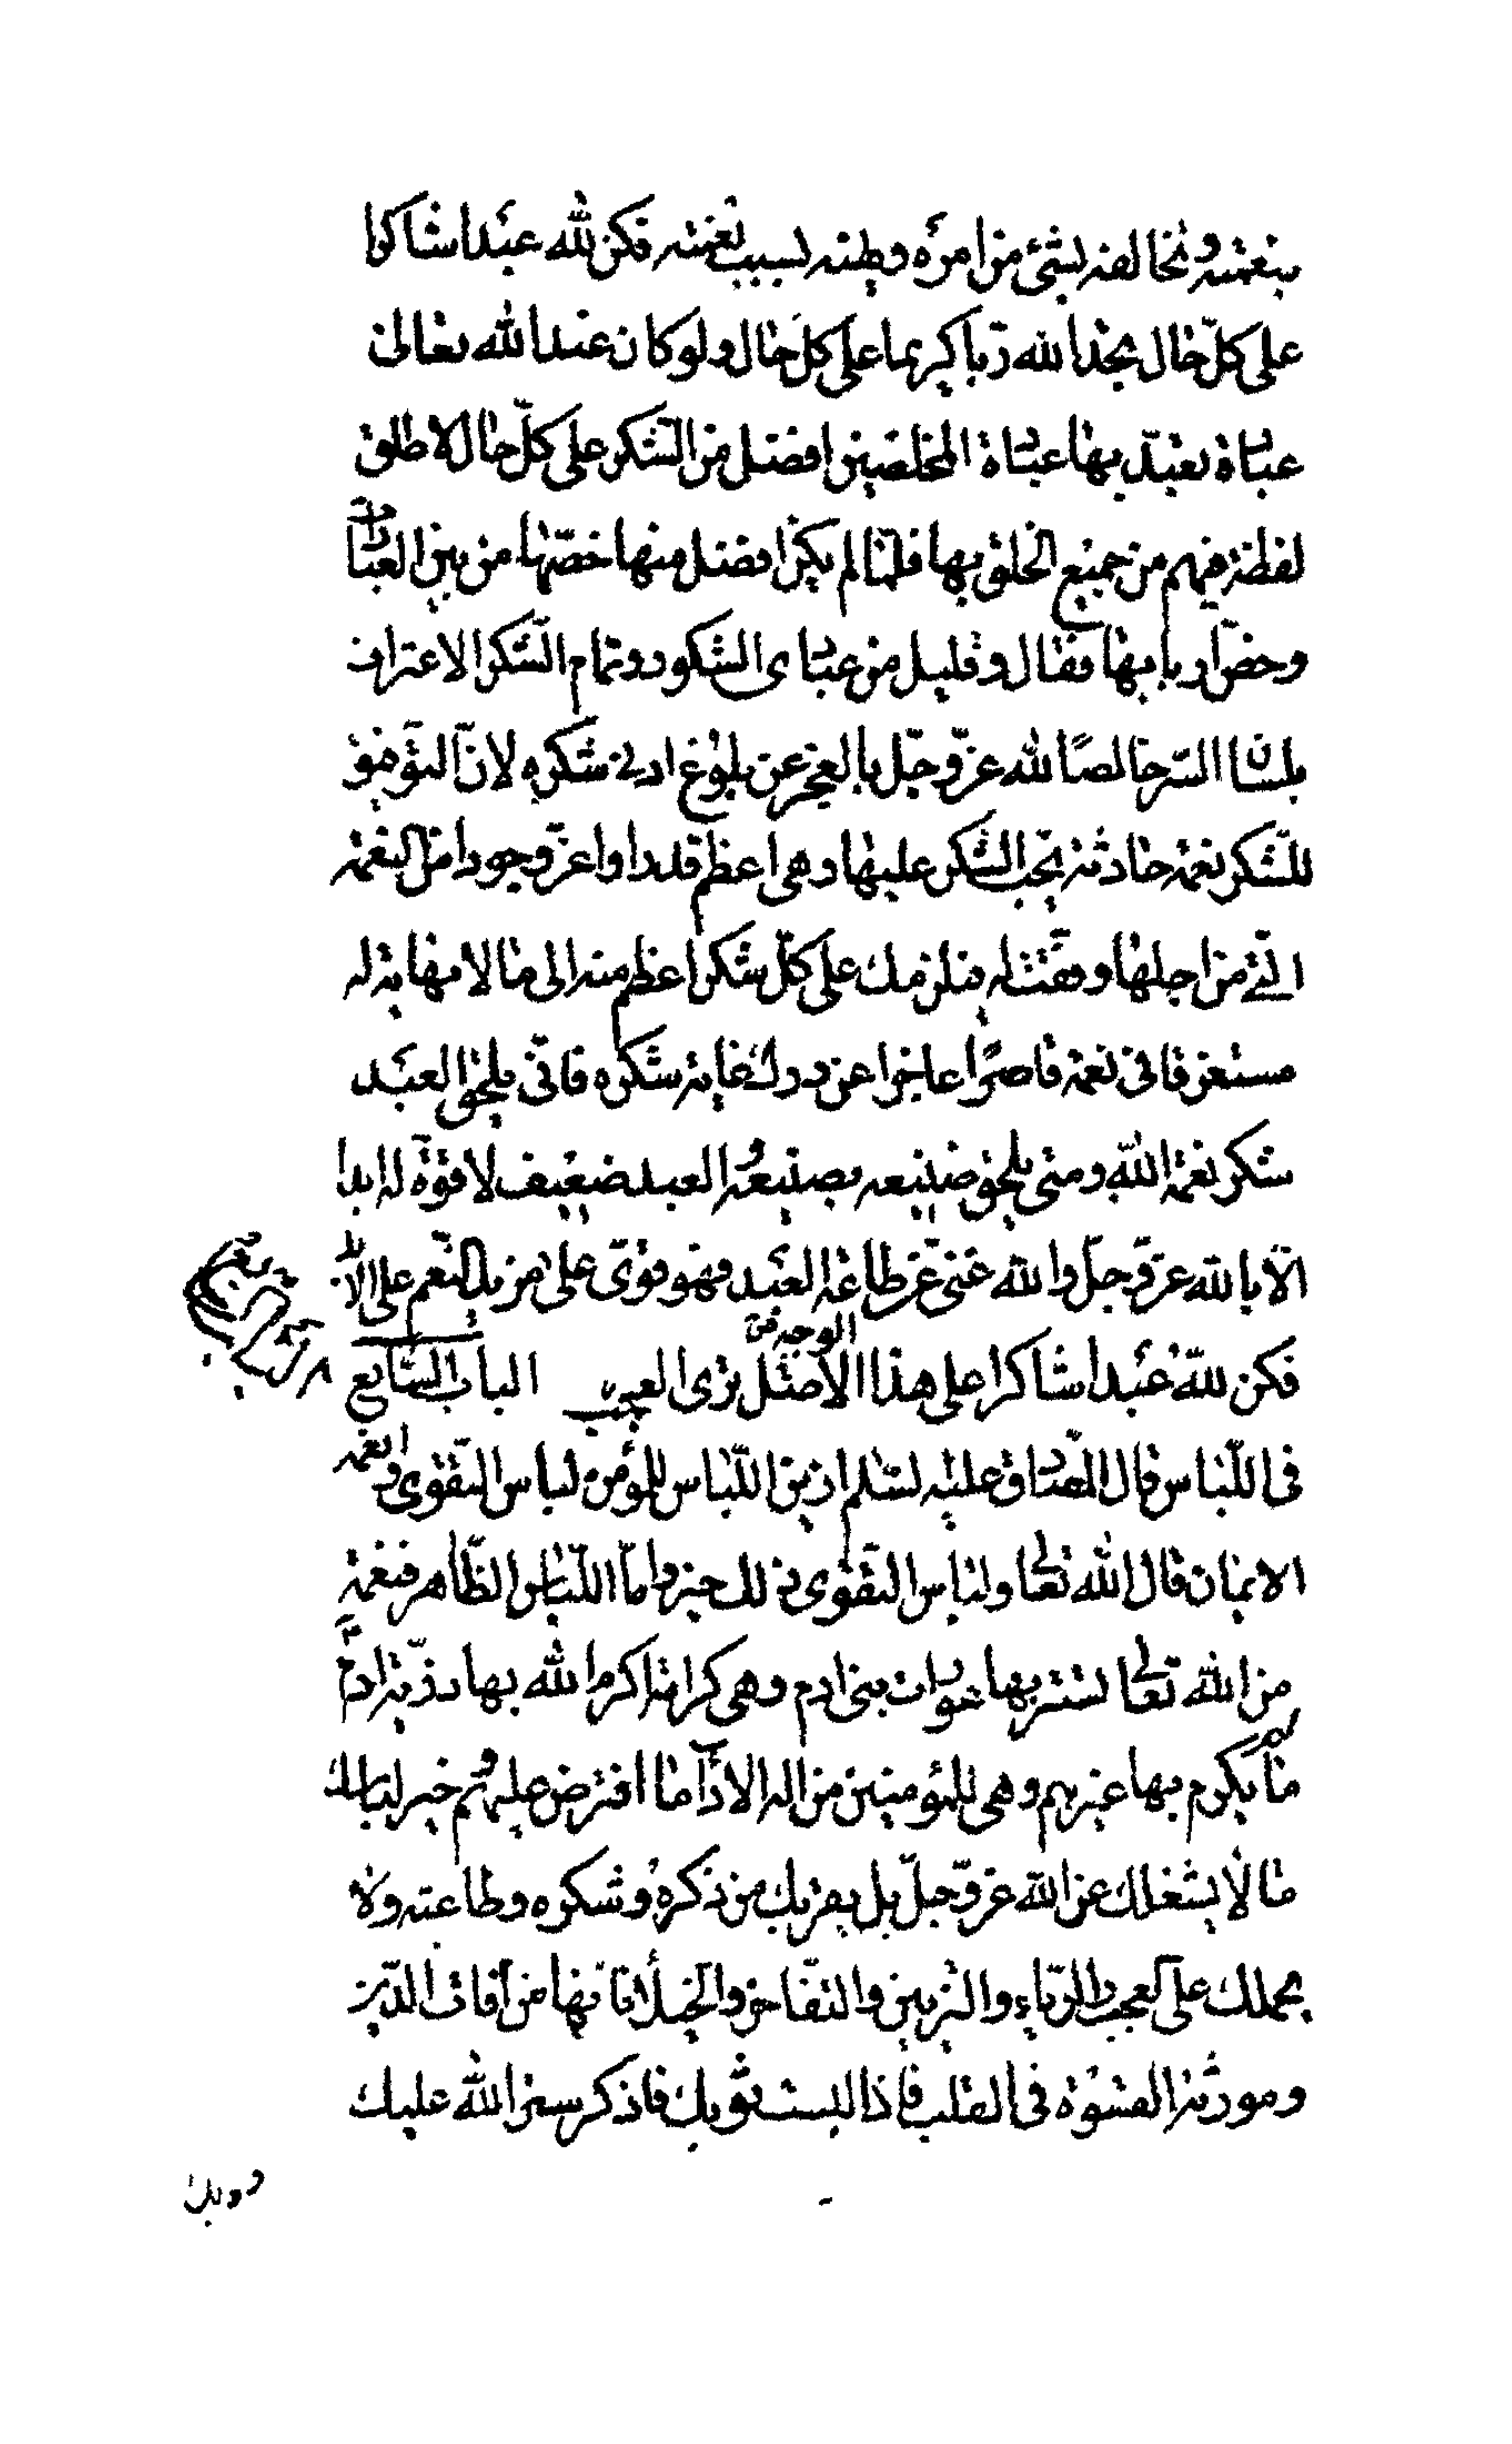 بنعمته ونخالفه بشئ من امره ونهيه بسبب نعمته فكن لله عبدا شاكرا
على كل حال تجد الله ربا كريما على كل حال ولو كان عند الله تعالى
عبادة تعبد بها عباده المخلصين افضل من الشكر على كل حال لاطلق
لفظه فيهم من جميع الخلق بها فلما لم يكن افضل منها خصها من بين العبادات
وخص اربابها فقال وقليل من عبادى الشكور وتمام الشكر الاعتراف
بلسان السر خالصا لله عز وجل بالعجز عن بلوغ ادنى شكره لان التوفيق
للشكر نعمة حادثة يجب الشكر عليها وهى اعظم قدرا واعز وجودا من النعمة
التى من اجلها وفقت له فيلزمك على كل شكر اعظم منه الى ما لا نهاية له
مستغرقا فى نعمه قاصرا عاجزا عن درك غاية شكره فانى يلحق العبد
شكر نعمة الله ومتى يلحق صنيعه بصنيعه والعبد ضعيف لا قوة له ابدا
الا بالله عز وجل والله غنى عن طاعة العبد فهو قوى على مزيد النعم على الابد
فكن لله عبدا شاكرا على هذا الاصل ترى العجب الباب السابع
الوجه
فى اللباس قال الصادق عليه لسلم ازين اللباس للمؤمن لباس التقوى وانعمه
الايمان قال الله تعالى ولباس التقوى ذلك خير واما اللباس الظاهر فنعمة
من الله تعالى تستر بها عورات بنى ادم وهى كرامة اكرم الله بها ذرية ادم
ما لم يكرم بها غيرهم وهى للمؤمنين من اله الاداء ما افترض عليهم وخير لباسك
ما لا يشغلك عن الله عز وجل بل يقربك من ذكره وشكره وطاعته ولا
يحملك على العجب والرياء والتزيين والتفاخر والخيلاء فانها من افات الدين
ومورثة القسوة فى القلب فاذا لبست ثوبك فاذكر ستر الله عليك